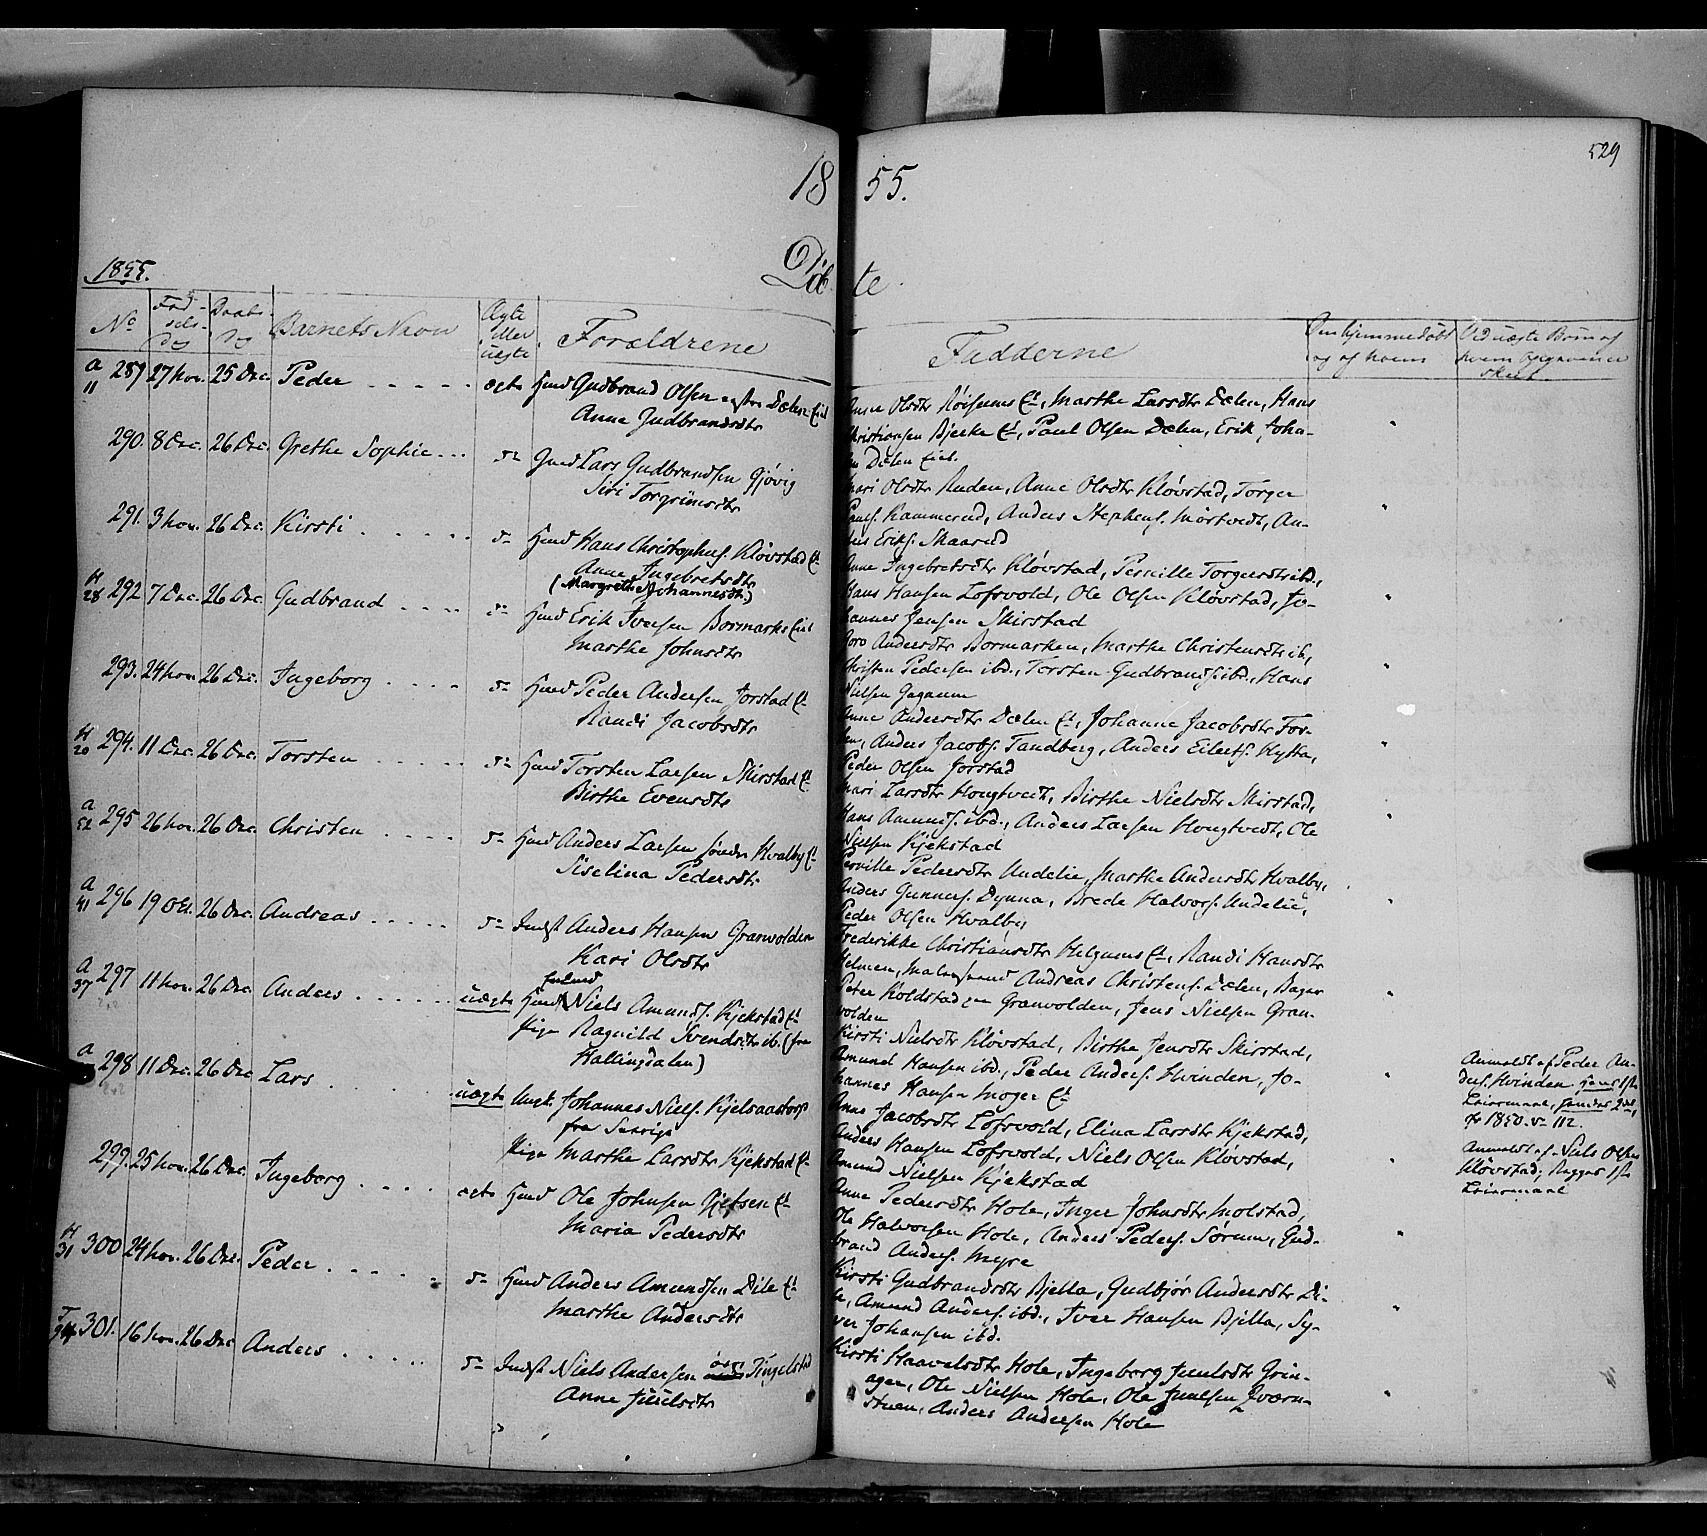 529
18 55.
Døb te.
1855.
No Fødselsdag Daabsdag Barnets Navn Ægte eller uægte Forældrene
Fadderne Om hjemmedøbt og af hvem Ved uægte Børn af hvem opgivelsen skeet
A 11 289 27 Nov. 25 Dec. Peder ægte Husmd Gudbrand Olsen Dælen Eiet
Anne Gudbrandsdtr
Anne Olsdtr Røisums Et, Marthe Larsdtr Dælen, Hans
Christiansen Bjerke Et, Paul Olsen Dælen, Erik John-
sen Dælen Eiet.
290. 8 Dec. 26 Dec. Grethe Sophie do Gmd Lars Gudbrandsen Gjøvig
Siri Torgrimsdtr
Mari Olsdtr Ruden, Anne Olsdtr Kløvstad, Torger
Pauls. Kammerud, Anders Stephens. Mortvedt, An-
ders Eriks. Skaarud
291. 3 Nov. 26 Dec. Kirsti do Husmd Hans Christophers. Kløvstad Et
Anne Ingebretsdtr
(Margrethe Johannesdtr.)
Anne Ingebretsdtr Kløvstad, Pernille Torgersdtr ibd.,
Hans Hansen Lofsvold, Ole Olsen Kløvstad, Jo-
hannes Jensen Skirstad
H 28 292 7 Dec. 26 Dec. Gudbrand do Husmd Erik Iversen Bormarks Eiet
Marthe Johnsdtr
Goro Andersdtr Bormarken, Marthe Christensdtr ib.,
Christen Pedersen ibd., Torsten Gudbrands. ibd., Hans
Nielsen Gagnum
293. 24 Nov. 26 Dec. Ingeborg do Husmd Peder Andersen Jorstad Et
Randi Jacobsdtr
Anne Andersdtr Dælen Et, Johanne Jacobsdtr Fos-
sen, Anders Jacobs. Tandberg, Anders Eilerts. Hytta,
Peder Olsen Jorstad
H 20 294. 11 Dec. 26 Dec. Torsten do Husmd Torsten Larsen Skirstad Et
Birthe Evensdtr
Mari Larsdtr Hougtvedt, Birthe Nielsdtr Skirstad,
Hans Amunds. ibd., Anders Larsen Hougtvedt, Ole
Nielsen Kjekstad
A 52 295 26 Nov. 26 Dec. Christen do Husmd Anders Larsen søndre Hvalby Et
Siselina Pedersdtr
Pernille Pedersdtr Undelie, Marthe Andersdtr Hvalby,
Anders Gunners. Dynna, Brede Halvors. Undelie,
Peder Olsen Hvalby
A 41 296 19 Oct. 26 Dec. Andreas do Inderst Anders Hansen Granvolden
Kari Olsdtr
Frederikke Christiansdtr Helgums Et, Randi Hansdtr
Helmen, Malersvend Andreas Christens. Dælen, Bager
Peter Koldstad paa Granvolden, Jens Nielsen Gran-
volden
A 37 297 11 Nov. 26 Dec. Anders uægte Husmd Niels Amunds. Kjekstad Et
Pige Ragnild Svendsdtr ib. (fra
Hallingdalen)
Kirsti Nielsdtr Kløvstad, Birthe Jensdtr Skirstad,
Amund Hansen ibd., Peder Anders. Hvinden, Jo-
hannes Hansen Moger Et
Anmeldt af Peder An-
ders. Hvinden, hans 1ste
Leiermaal, hendes 2det,
1850. 112.
A 298 11 Dec. 26 Dec. Lars uægte Ungk. Johannes Niels. Kjelsaastorp
fra Sverige
Pige Marthe Larsdtr Kjekstad Et
Anne Jacobsdtr Lofsvold, Elina Larsdtr Kjekstad,
Anders Hansen Lofsvold, Niels Olsen Kløvstad,
Amund Nielsen Kjekstad
Anmeldt af Niels Olsen
Kløvstad, Begges 1ste
Leiermaal
299. 25 Nov. 26 Dec. Ingeborg ægte Husmd Ole Johnsen Gjefsen Et
Maria Pedersdtr
Anne Pedersdtr Hole, Inger Johnsdtr Molstad,
Ole Halvorsen Hole, Anders Peders. Sørum, Gud-
brand Anders. Myre
H 31 300 24 Nov. 26 Dec. Peder do Husmd Anders Amundsen Lile Et
Marthe Andersdtr
Kirsti Gudbrandsdtr Bjella, Gudbjør Andersdtr Li-
le, Amund Anders. ibd., Iver Hansen Bjella, Sy-
ver Johansen ibd.
T 301. 16 Nov. 26 Dec. Anders do Inderst Niels Andersen Tingelstad
Anne Juulsdtr
Kirsti Haavelsdtr Hole, Ingeborg Juulsdtr Grin-
ager, Ole Nielsen Hole, Ole Juulsen Qværn-
stuen, Anders Andersen Hole